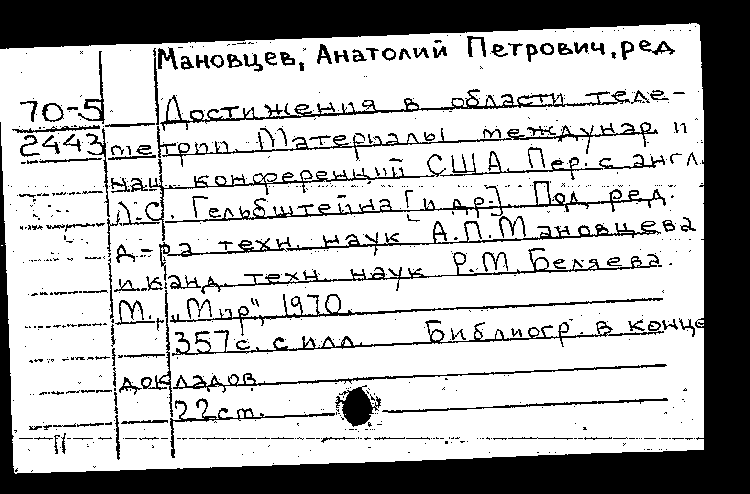 Мановцев, Анатолий Петрович, ред
70-5 Достижения в области теле-
2443 метрии. Материалы междунар. и
нац. конференций США. Пер. с англ.
Л.С. Гельбштейна [и др.]. Под ред.
д-ра техн. наук А.П. Мановцева
и канд. техн. наук Р.М. Беляева.
М., „Мир“, 1970.
357 с. с илл. Библиогр. в конце
докладов
22 см.